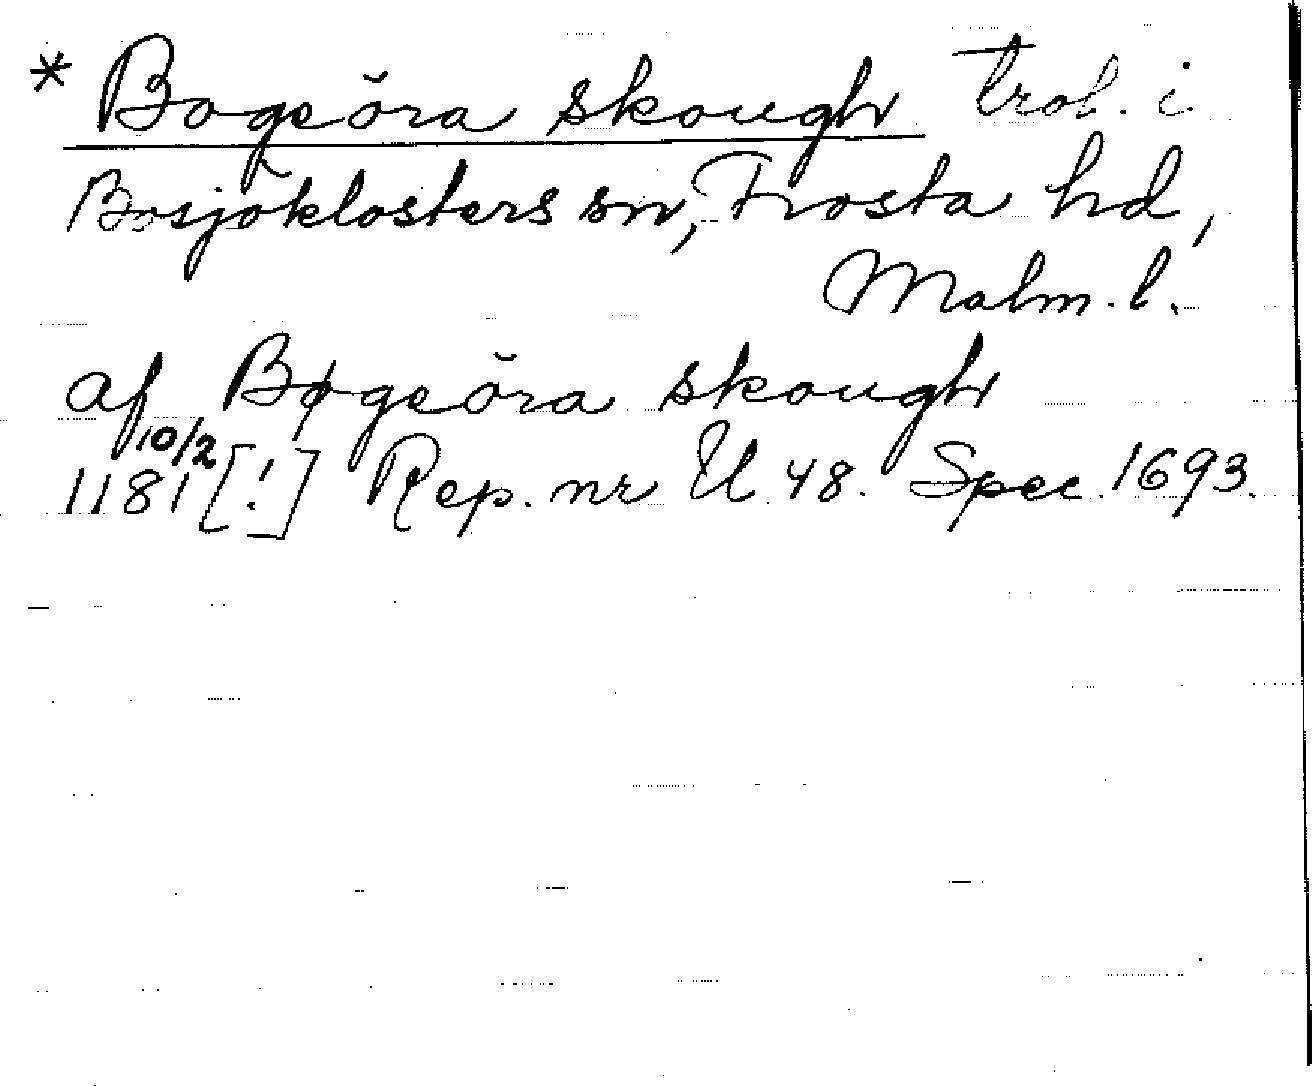 * Bogeŏra skough trol. i
Bosjöklosters sn, Frosta hd,
Malm. l.
af Bøgeŏra skough
10/2
1181 [!] Rep. nr U 48. Spec. 1693.